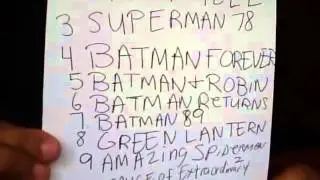 3 SUPERMAN 78
4 BATMAN FOREVER
5 BATMAN + ROBIN
6 BATMAN RETURNS
7 BATMAN 89
8 GREEN LANTERN
9 AMAZING SPIDERMAN 2
OF EXTRAORDINARY